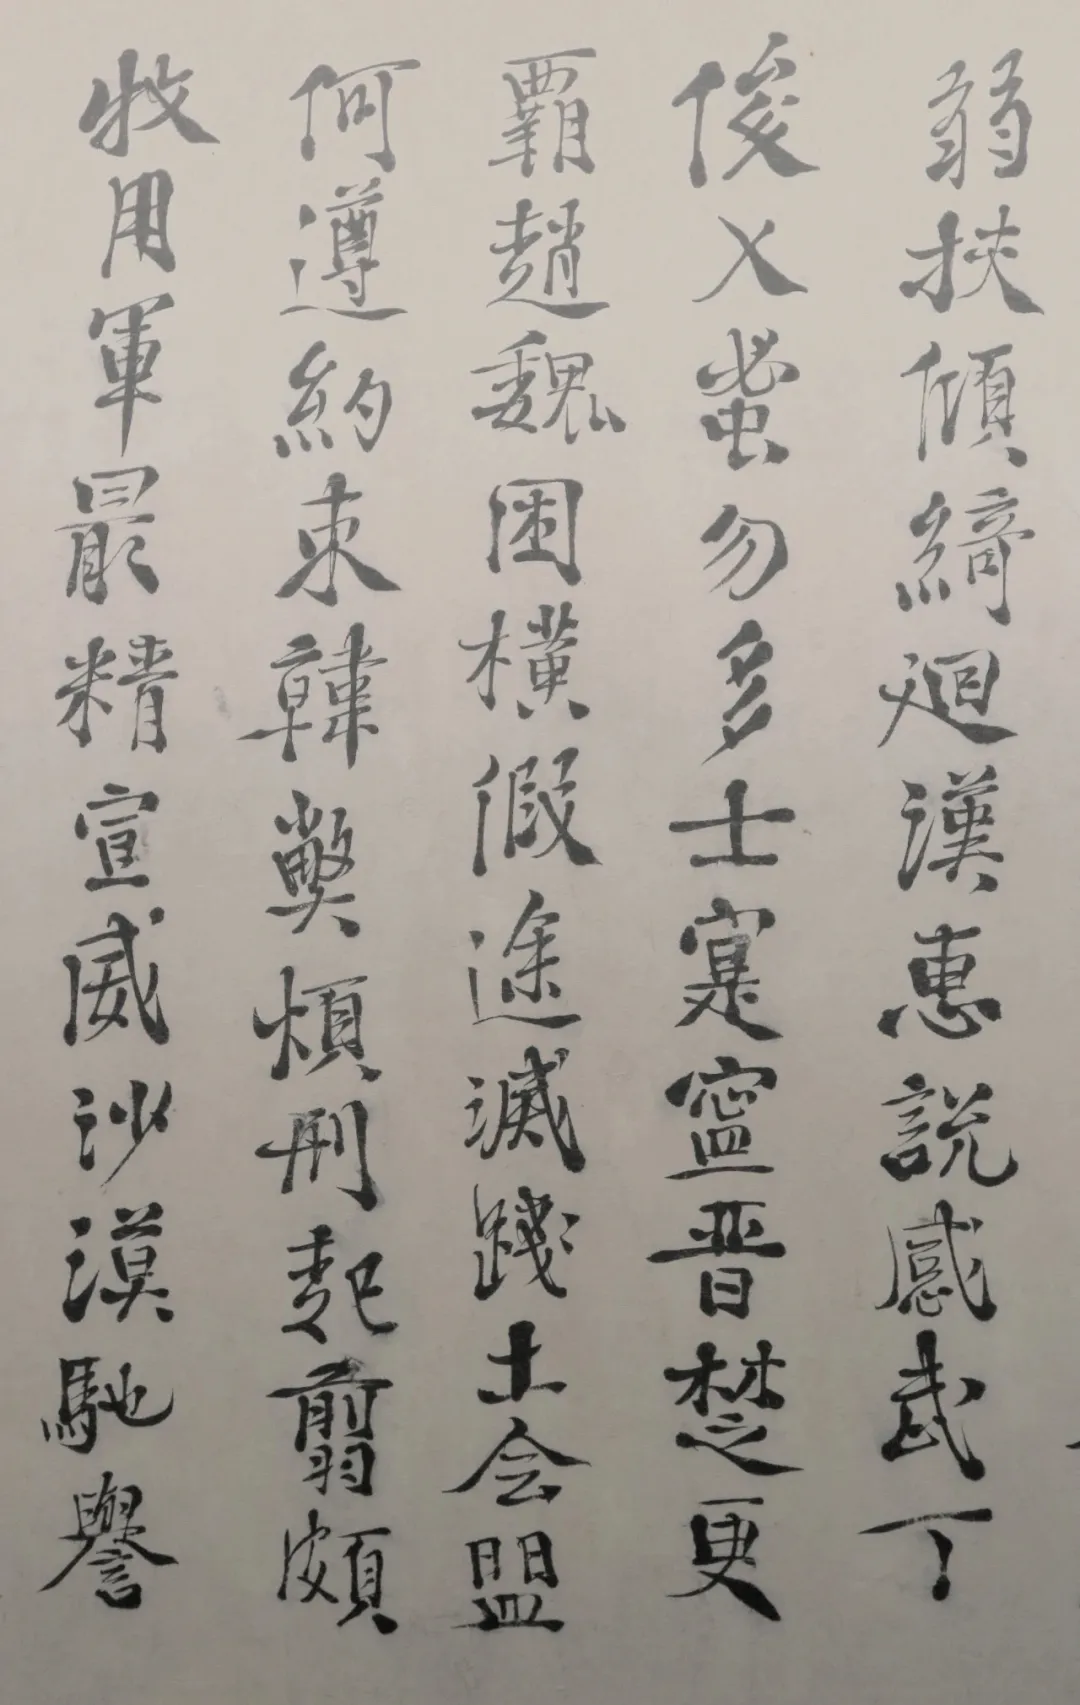 弱扶傾綺迴漢惠説感武丁
俊乂蜜勿多士寔寍晋楚更
覇趙魏困橫假途滅踐土会盟
何遵約束韓獘煩刑起翦頗
牧用軍最精宣威沙漠馳譽